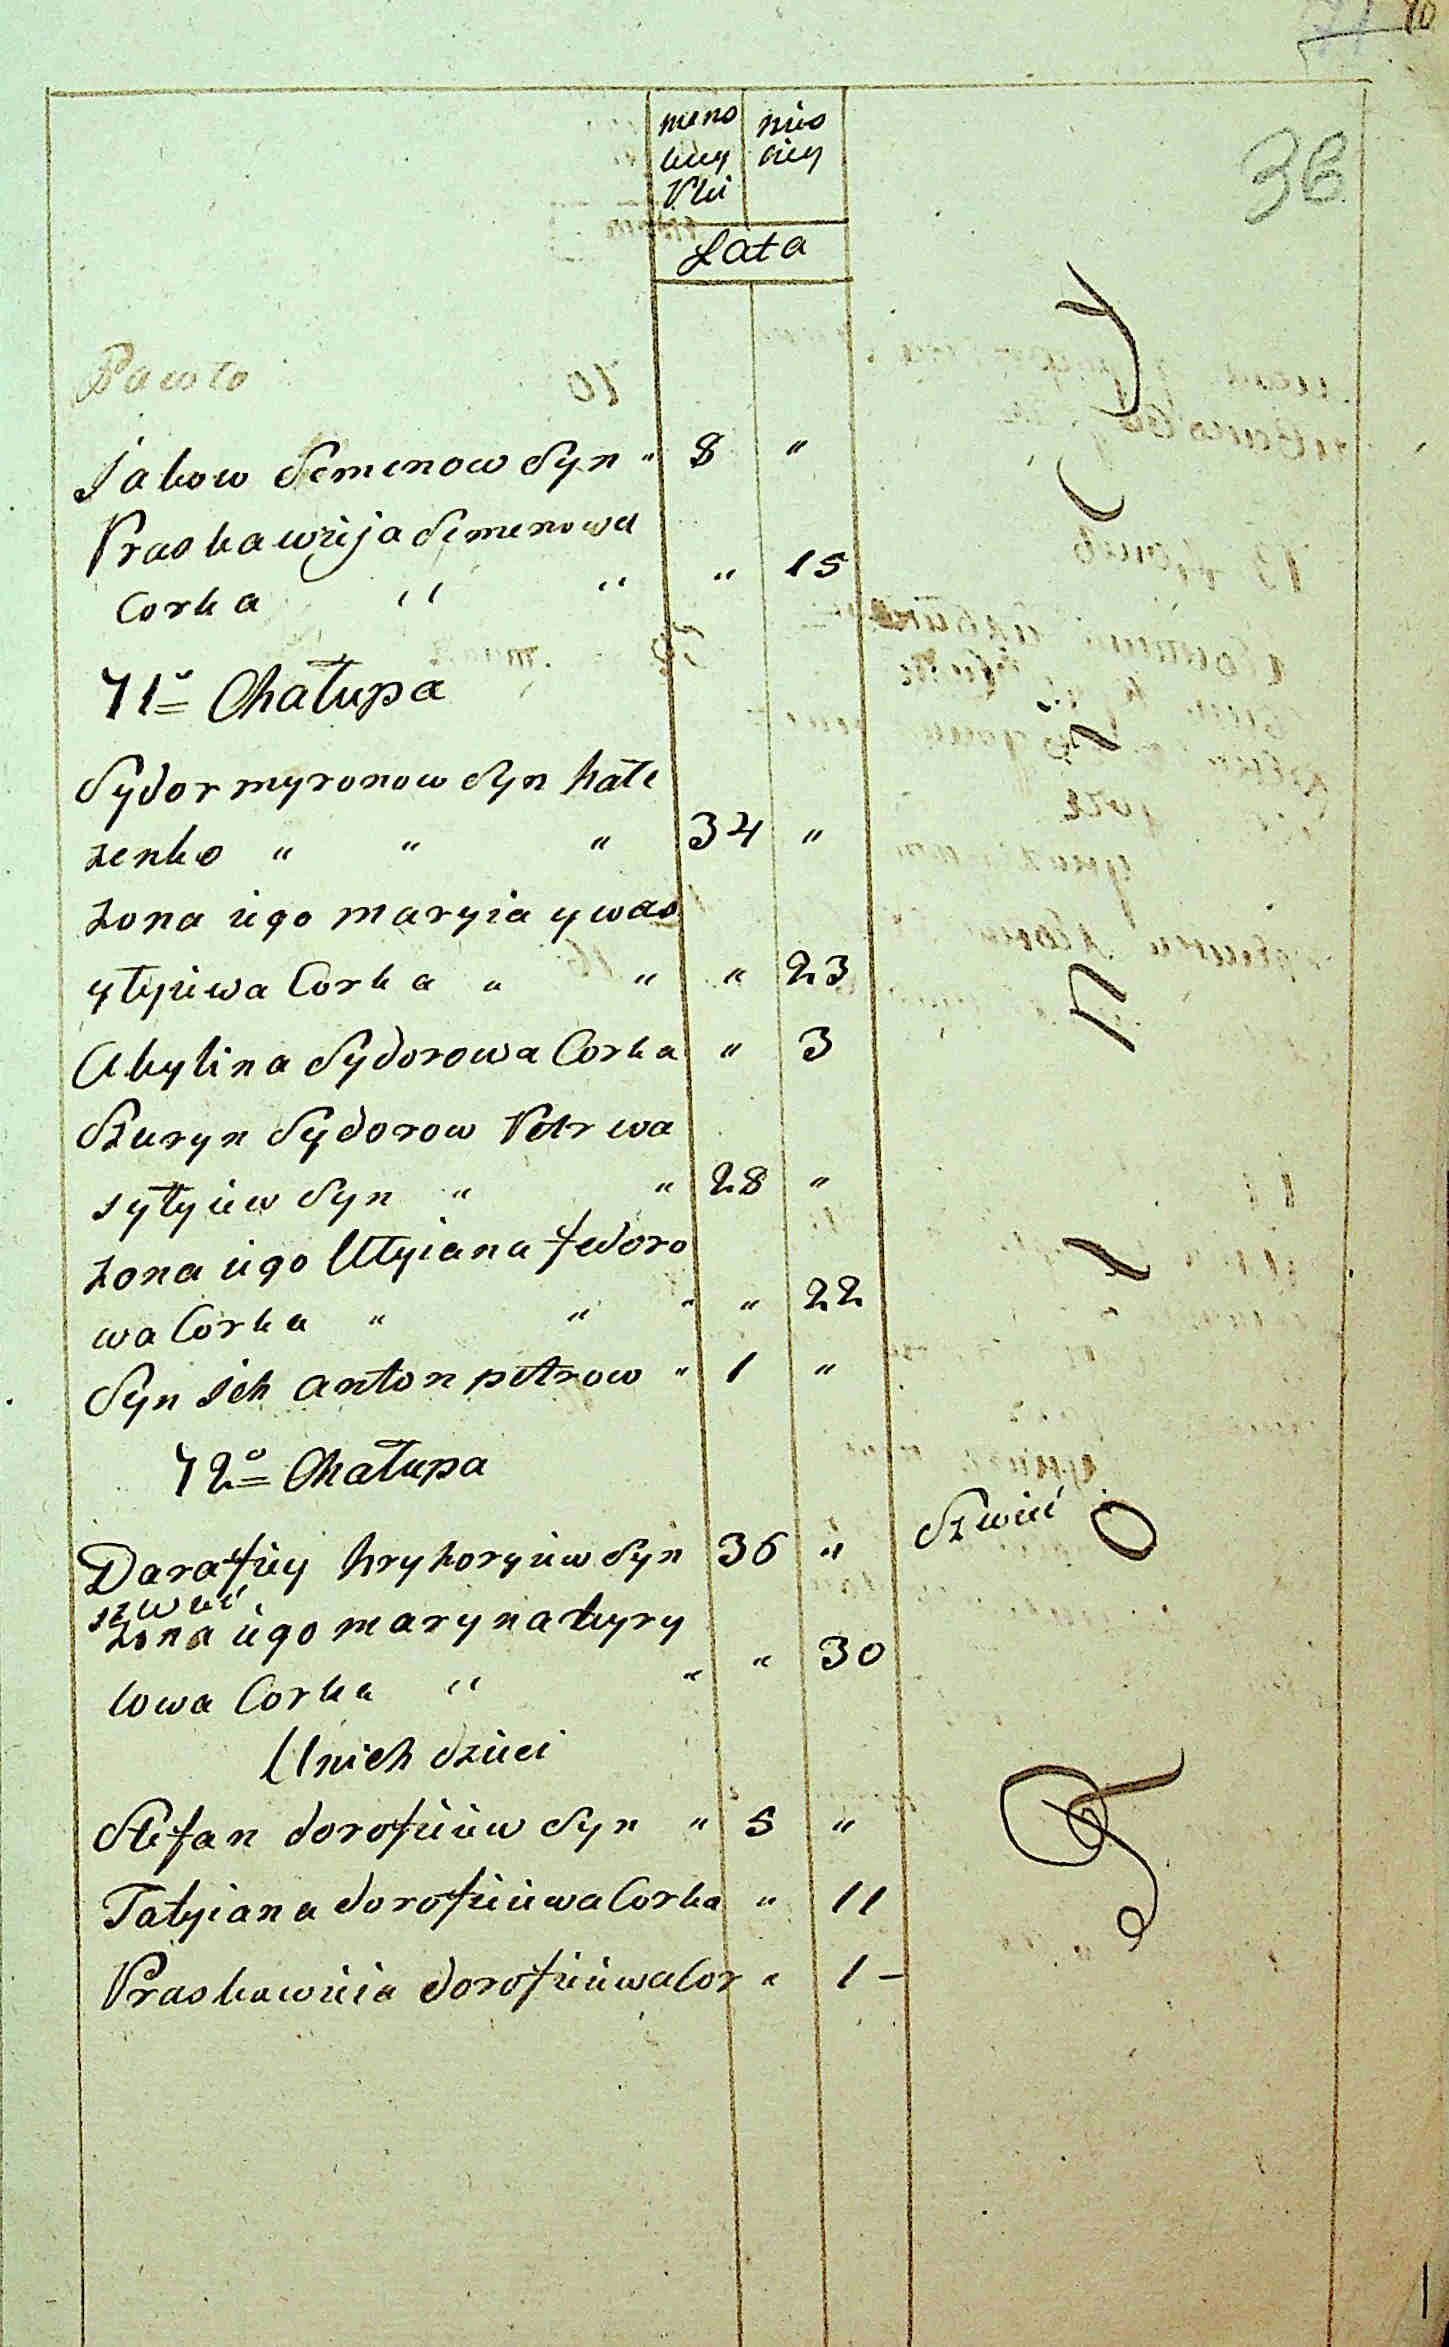 71 70
38
meno żeń
skiey skiey
Płci
Lata
Pawło
Jakow Semenow Syn " 8 "
Praskawieja Semenowa
Corka " " " 15
71o Chałupa
Sydor myronow Syn hałe
zenko " " " 34 "
żona iego maryia ywas
ylyiewa Corka " " " 23
Akylina Sydorowa Corka " 3
Szuryn Sydorow Petr wa
syłyiew Syn " " 28 "
żona iego Ulyiana fedoro
wa Corka " " " " 22
Syn ich anton petrow " 1 "
72o Chałupa
Darafiey hryhoryiew Syn 36 " Szwieć
szwieć
żona iego maryna kyry
lowa Corka " " " 30
U nich dzieci
Stefan dorofieiew Syn " 5 "
Tatyiana dorofieiewa Corka " 11
Praskawieia dorofieiewa Cor " 1 -